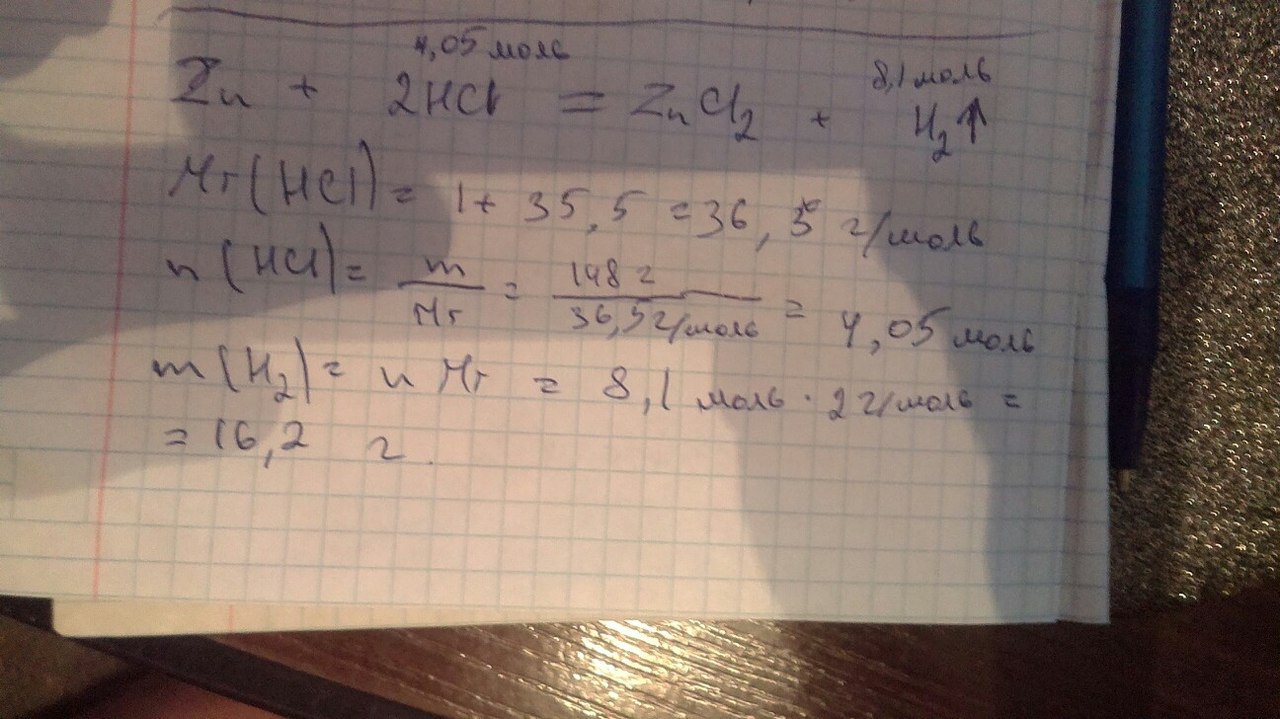 4,05 моль 8,1 моль
Zn + 2HCl = ZnCl2 + H2↑
Mr(HCl) = 1+ 35,5 = 36,5 г/моль
n(HCl) = m/Mr = 148 г/36,5 г/моль = 4,05 моль
m(H2) = n Mr = 8,1 моль · 2 г/моль =
= 16,2 г.